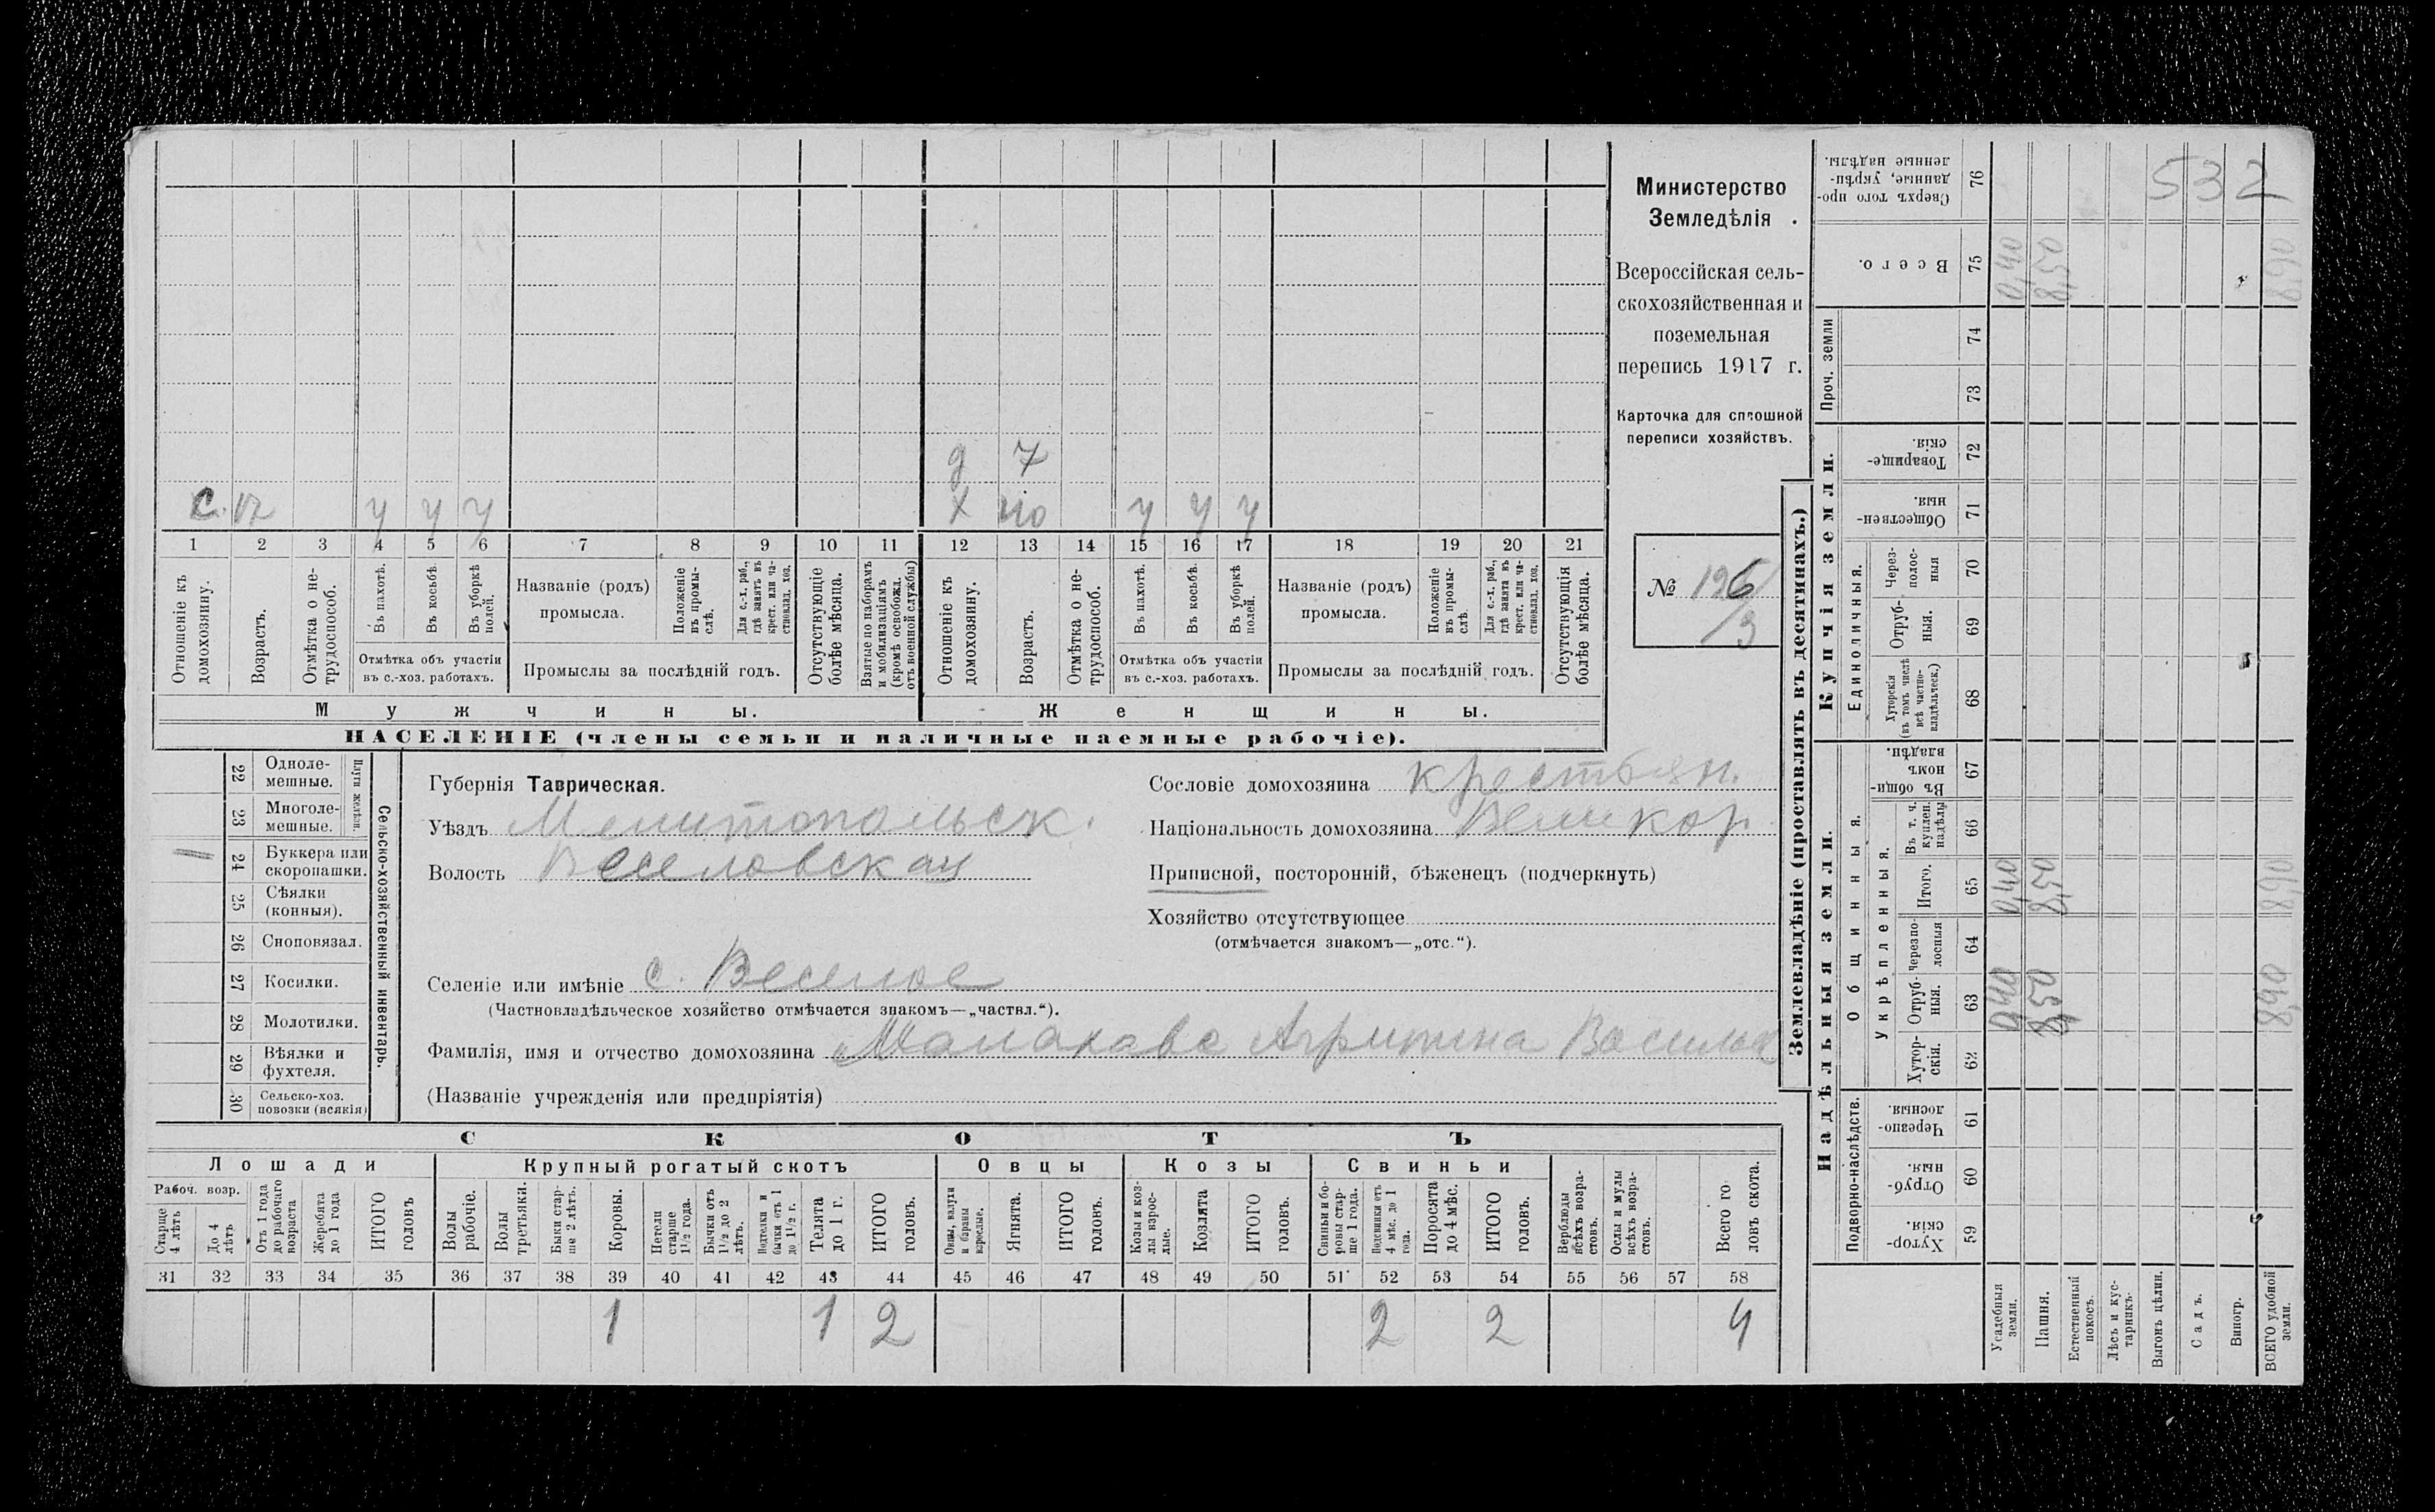 532
Министерство
Земледѣлія
Всероссійская сель-
скохозяйственная и
поземельная
перепись 1917 г.
Карточка для сплошной
переписи хозяйствъ.
№ 126
/3
д 7
с. 17 у у у х 40 у у у
1 2 3 4 5 6 7 8 9 10 11 12 13 14 15 16 17 18 19 20 21
Отношеніе къ домохозяину.
Возрастъ.
Отмѣтка о не-трудоспособ.
Въ пахотѣ.
Въ косьбѣ.
Въ уборкѣ полей.
Отмѣтка объ участіи
въ с.-хоз. работахъ.
Названіе (родъ)
промысла.
Положеніе въ промы-слѣ.
Для с.-х. раб., гдѣ занятъ въ крест. или ча-стновлад. хоз.
Промыслы за послѣдній годъ.
Отсутствующіе болѣе мѣсяца.
Взятые по наборамъ и мобилизаціямъ (кромѣ освобожд. отъ военной службы)
Отношеніе къ домохозяину.
Возрастъ.
Отмѣтка о не-трудоспособ.
Въ пахотѣ.
Въ косьбѣ.
Въ уборкѣ полей.
Отмѣтка объ участіи
въ с.-хоз. работахъ.
Названіе (родъ)
промысла.
Положеніе въ промы-слѣ.
Для с.-х. раб., гдѣ занята въ крест. или ча-стновлад. хоз.
Промыслы за послѣдній годъ.
Отсутствующія болѣе мѣсяца.
Мужчины.
Женщины.
НАСЕЛЕНІЕ (члены семьи и наличные наемные рабочіе).
Сельско-хозяйственный инвентарь.
Плуги желѣзн.
22 Одноле-мешные.
23 Многоле-мешные.
24 Буккера или скоропашки. 1
25 Сѣялки (конныя).
26 Сноповязал.
27 Косилки.
28 Молотилки.
29 Вѣялки и фухтеля.
30 Сельско-хоз. повозки (всякія)
Губернія Таврическая.
Уѣздъ Мелитопольск.
Волость Веселовская
Сословіе домохозяина крестьян.
Національность домохозяина Великор.
Приписной, посторонній, бѣженецъ (подчеркнуть)
Хозяйство отсутствующее
(отмѣчается знакомъ—„отс.“).
Селеніе или имѣніе с. Веселое
(Частновладѣльческое хозяйство отмѣчается знакомъ—„частвл.“).
Фамилія, имя и отчество домохозяина Малахава Агрипина Васильев
(Названіе учрежденія или предпріятія)
СКОТЪ
Лошади
Рабоч. возр.
Старше 4 лѣтъ
До 4 лѣтъ
Отъ 1 года до рабочаго возраста
Жеребята до 1 года
ИТОГО головъ
Крупный рогатый скотъ
Волы рабочіе.
Волы третьяки.
Быки стар-ше 2 лѣтъ.
Коровы.
Нетели старше 1½ года.
Бычки отъ 1½ до 2 лѣтъ.
Подтелки и бычки отъ 1 до 1½ г.
Телята до 1 г.
ИТОГО головъ.
Овцы
Овцы, валухи и бараны взрослые.
Ягнята.
ИТОГО головъ.
Козы
Козы и коз-лы взрос-лые.
Козлята
ИТОГО головъ.
Свиньи
Свиньи и бо-ровы стар-ше 1 года.
Подсвинки отъ 4 мѣс. до 1 года.
Поросята до 4 мѣс.
ИТОГО головъ.
Верблюды всѣхъ возра-стовъ.
Ослы и мулы всѣхъ возра-стовъ.
Всего го-ловъ скота.
31 32 33 34 35 36 37 38 39 40 41 42 43 44 45 46 47 48 49 50 51 52 53 54 55 56 57 58
1 1 2 2 2 4
Землевладѣніе (проставлять въ десятинахъ.)
Надѣльныя земли.
Подворно-наслѣдств.
Хутор-скія. 59
Отруб-ныя. 60
Черезпо-лосныя 61
Общинныя.
Укрѣпленныя.
Хутор-скія. 62
Отруб-ныя. 63 0,40 8,50 8,90
Черезпо-лосныя 64
Итого. 65 0,40 8,50 8,90
Въ т. ч. куплен. надѣлы 66
Въ общин-номъ владѣн. 67
Купчія земли.
Единоличныя.
Хуторскія (въ томъ числѣ всѣ частно-владѣльческ.) 68
Отруб-ныя. 69
Через-полос-ныя 70
Обществен-ныя. 71
Товарище-скія. 72
Проч. земли
73
74
Всего. 75 0,40 8,50 8,90
Сверхъ того про-данные, укрѣп-ленные надѣлы. 76
Усадебныя земли.
Пашня.
Естественный покосъ.
Лѣсъ и кус-тарникъ.
Выгонъ цѣлин.
Садъ.
Виногр.
ВСЕГО удобной земли.